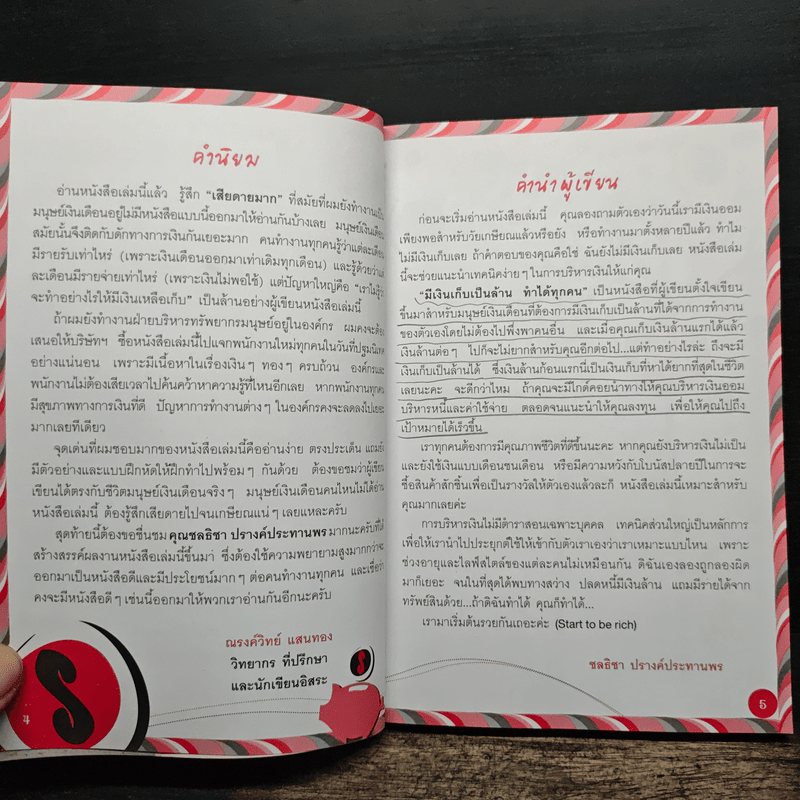 คำนิยม
อ่านหนังสือเล่มนี้แล้ว รู้สึก “เสียดายมาก” ที่สมัยที่ผมยังทำงานเป็น
มนุษย์เงินเดือนอยู่ไม่มีหนังสือแบบนี้ออกมาให้อ่านกันบ้างเลย มนุษย์เงินเดือน
สมัยนั้นจึงติดกับดักทางการเงินกันเยอะมาก คนทำงานทุกคนรู้ว่าแต่ละเดือน
มีรายรับเท่าไหร่ (เพราะเงินเดือนออกมาเท่าเดิมทุกเดือน) และรู้ด้วยว่าแต่
ละเดือนมีรายจ่ายเท่าไหร่ (เพราะเงินไม่พอใช้) แต่ปัญหาใหญ่คือ “เราไม่รู้ว่า
จะทำอย่างไรให้มีเงินเหลือเก็บ” เป็นล้านอย่างผู้เขียนหนังสือเล่มนี้
ถ้าผมยังทำงานฝ่ายบริหารทรัพยากรมนุษย์อยู่ในองค์กร ผมคงจะต้อง
เสนอให้บริษัทฯ ซื้อหนังสือเล่มนี้ไปแจกพนักงานใหม่ทุกคนในวันที่ปฐมนิเทศ
อย่างแน่นอน เพราะมีเนื้อหาในเรื่องเงินๆ ทองๆ ครบถ้วน องค์กรและ
พนักงานไม่ต้องเสียเวลาไปค้นคว้าหาความรู้ที่ไหนอีกเลย หากพนักงานทุกคน
มีสุขภาพทางการเงินที่ดี ปัญหาการทำงานต่างๆ ในองค์กรคงจะลดลงไปเยอะ
มากเลยทีเดียว
จุดเด่นที่ผมชอบมากของหนังสือเล่มนี้คืออ่านง่าย ตรงประเด็น แถมยัง
มีตัวอย่างและแบบฝึกหัดให้ฝึกทำไปพร้อมๆ กันด้วย ต้องขอชมว่าผู้เขียน
เขียนได้ตรงกับชีวิตมนุษย์เงินเดือนจริงๆ มนุษย์เงินเดือนคนไหนไม่ได้อ่าน
หนังสือเล่มนี้ ต้องรู้สึกเสียดายไปจนเกษียณแน่ๆ เลยแหละครับ
สุดท้ายนี้ต้องขอชื่นชม คุณชลธิชา ปรางค์ประทานพร มากนะครับที่ได้
สร้างสรรค์ผลงานหนังสือเล่มนี้ขึ้นมา ซึ่งต้องใช้ความพยายามสูงมากกว่าจะ
ออกมาเป็นหนังสือดีและมีประโยชน์มากๆ ต่อคนทำงานทุกคน และเชื่อว่า
คงจะมีหนังสือดีๆ เช่นนี้ออกมาให้พวกเราอ่านกันอีกนะครับ
ณรงค์วิทย์ แสนทอง
วิทยากร ที่ปรึกษา
และนักเขียนอิสระ
4
คำนำผู้เขียน
ก่อนจะเริ่มอ่านหนังสือเล่มนี้ คุณลองถามตัวเองว่าวันนี้เรามีเงินออม
เพียงพอสำหรับวัยเกษียณแล้วหรือยัง หรือทำงานมาตั้งหลายปีแล้ว ทำไม
ไม่มีเงินเก็บเลย ถ้าคำตอบของคุณคือใช่ ฉันยังไม่มีเงินเก็บเลย หนังสือเล่ม
นี้จะช่วยแนะนำเทคนิคง่ายๆ ในการบริหารเงินให้แก่คุณ
“มีเงินเก็บเป็นล้าน ทำได้ทุกคน” เป็นหนังสือที่ผู้เขียนตั้งใจเขียน
ขึ้นมาสำหรับมนุษย์เงินเดือนที่ต้องการมีเงินเก็บเป็นล้านที่ได้จากการทำงาน
ของตัวเองโดยไม่ต้องไปพึ่งพาคนอื่น และเมื่อคุณเก็บเงินล้านแรกได้แล้ว
เงินล้านต่อๆ ไปก็จะไม่ยากสำหรับคุณอีกต่อไป...แต่ทำอย่างไรล่ะ ถึงจะมี
เงินเก็บเป็นล้านได้ ซึ่งเงินล้านก้อนแรกนี้เป็นเงินเก็บที่หาได้ยากที่สุดในชีวิต
เลยนะคะ จะดีกว่าไหม ถ้าคุณจะมีไกด์คอยนำทางให้คุณบริหารเงินออม
บริหารหนี้และค่าใช้จ่าย ตลอดจนแนะนำให้คุณลงทุน เพื่อให้คุณไปถึง
เป้าหมายได้เร็วขึ้น
เราทุกคนต้องการมีคุณภาพชีวิตที่ดีขึ้นนะคะ หากคุณยังบริหารเงินไม่เป็น
และยังใช้เงินแบบเดือนชนเดือน หรือมีความหวังกับโบนัสปลายปีในการจะ
ซื้อสินค้าสักชิ้นเพื่อเป็นรางวัลให้ตัวเองแล้วละก็ หนังสือเล่มนี้เหมาะสำหรับ
คุณมากเลยค่ะ
การบริหารเงินไม่มีตำราสอนเฉพาะบุคคล เทคนิคส่วนใหญ่เป็นหลักการ
เพื่อให้เรานำไปประยุกต์ใช้ให้เข้ากับตัวเราเองว่าเราเหมาะแบบไหน เพราะ
ช่วงอายุและไลฟ์สไตล์ของแต่ละคนไม่เหมือนกัน ดิฉันเองลองถูกลองผิด
มาก็เยอะ จนในที่สุดได้พบทางสว่าง ปลดหนี้มีเงินล้าน แถมมีรายได้จาก
ทรัพย์สินด้วย...ถ้าดิฉันทำได้ คุณก็ทำได้...
เรามาเริ่มต้นรวยกันเถอะค่ะ (Start to be rich)
ชลธิชา ปรางค์ประทานพร
5